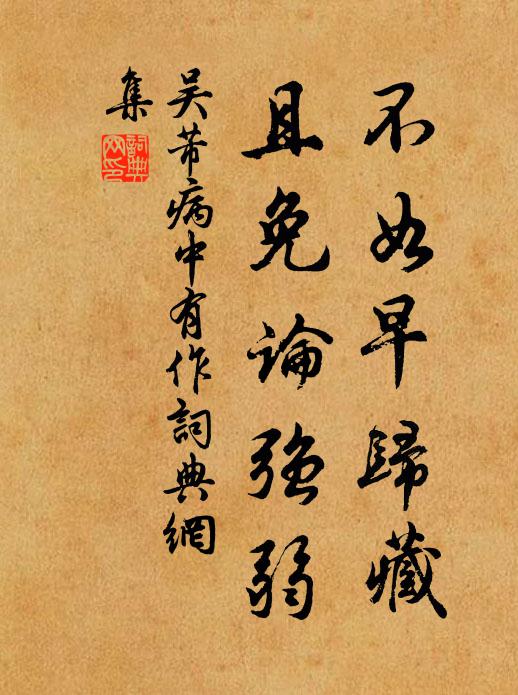 不如早歸藏
且免論強弱
吳芾病中有作詞典網
集
詞典
网印